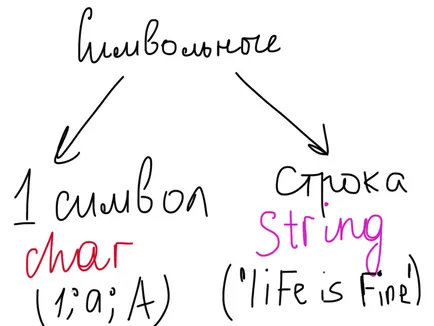 Символьные
1 символ
char
(1; a; A)
строка
String
('life is Fine')